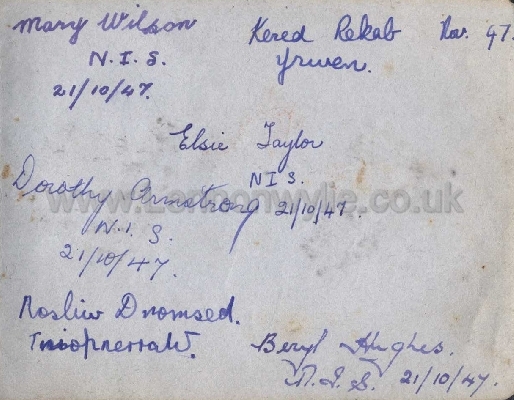 Mary Wilson
N.I.S.
21/10/47.
Kered Rekab Nov. 47.
Yrwen.
Elsie Taylor
N I S.
21/10/47.
Dorothy Armstrong
N.I.S.
21/10/47.
www.Lennonwylie.co.uk
Nosliw Dnomsed.
Tniopnerraw.
Beryl Hughes.
N.I.S. 21/10/47.